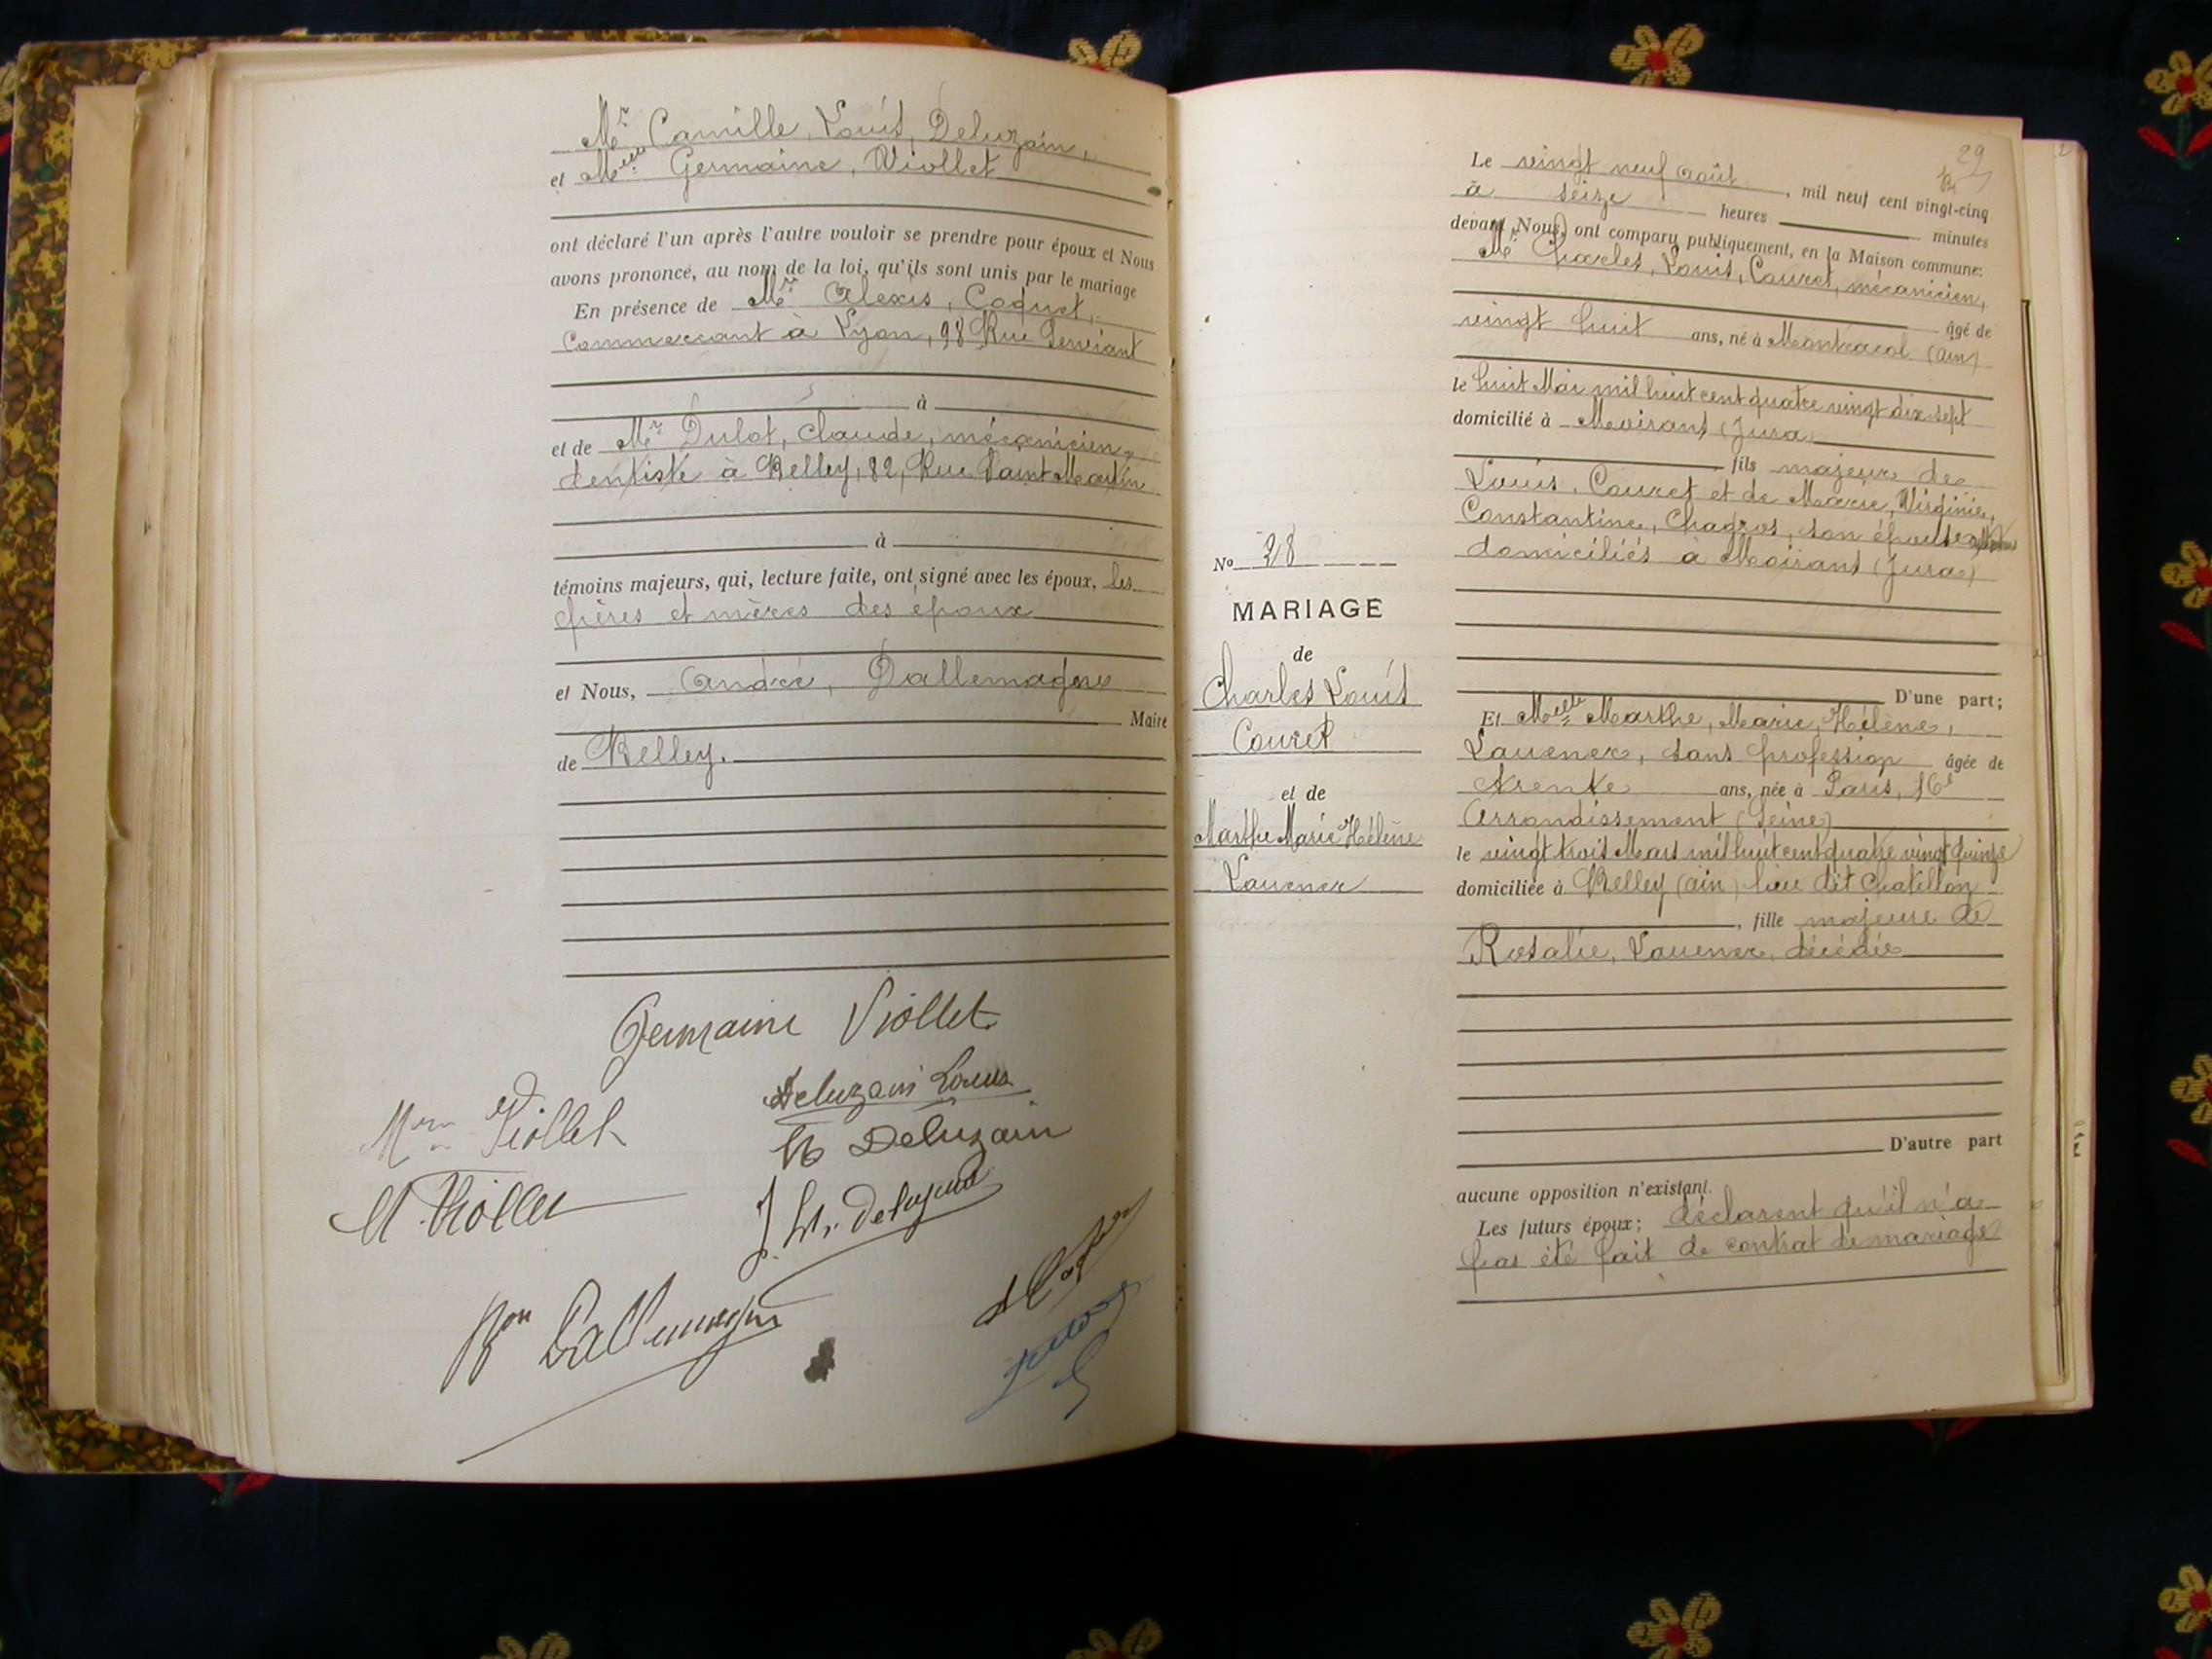 Mr Camille, Louis, Deluzain,
et Melle Germaine, Viollet
ont déclaré l'un après l'autre vouloir se prendre pour époux et Nous
avons prononcé, au nom de la loi, qu'ils sont unis par le mariage
En présence de Mr Alexis, Coquet,
Commerçant à Lyon, 98 Rue Servient
à
et de Mr Dulot, Claude, mécanicien,
dentiste à Belley, 82, Rue Saint Martin
à
témoins majeurs, qui, lecture faite, ont signé avec les époux, les
pères et mères des époux
et Nous, André, Dallemagne
Maire
de Belley.
Germaine Viollet
Mme Viollet
Deluzain Louis
Deluzain
M. Viollet
Bon Dallemagne
29
Le vingt neuf août, mil neuf cent vingt-cinq
à seize heures minutes
devant Nous, ont comparu publiquement, en la Maison commune:
Mr Charles, Louis, Couret, mécanicien,
âgé de
vingt huit ans, né à Montracol (Ain)
le huit Mai mil huit cent quatre vingt dix sept
domicilié à Moirans (Jura)
fils majeur de
Louis, Couret et de Marie, Virginie,
Constantine, Chagros, son épouse
domiciliés à Moirans (Jura)
D'une part;
No 28
MARIAGE
de
Charles Louis
Couret
et de
Marthe Marie Hélène
Lauener
Et Melle Marthe, Marie, Hélène,
Lauener, sans profession âgée de
trente ans, née à Paris, 16e
Arrondissement (Seine)
le vingt trois Mars mil huit cent quatre vingt quinze
domiciliée à Belley (Ain) lieu dit Chatillon
, fille majeure de
Rosalie, Lauener, décédée
D'autre part
aucune opposition n'existant.
Les futurs époux; déclarent qu'il n'a
pas été fait de contrat de mariage